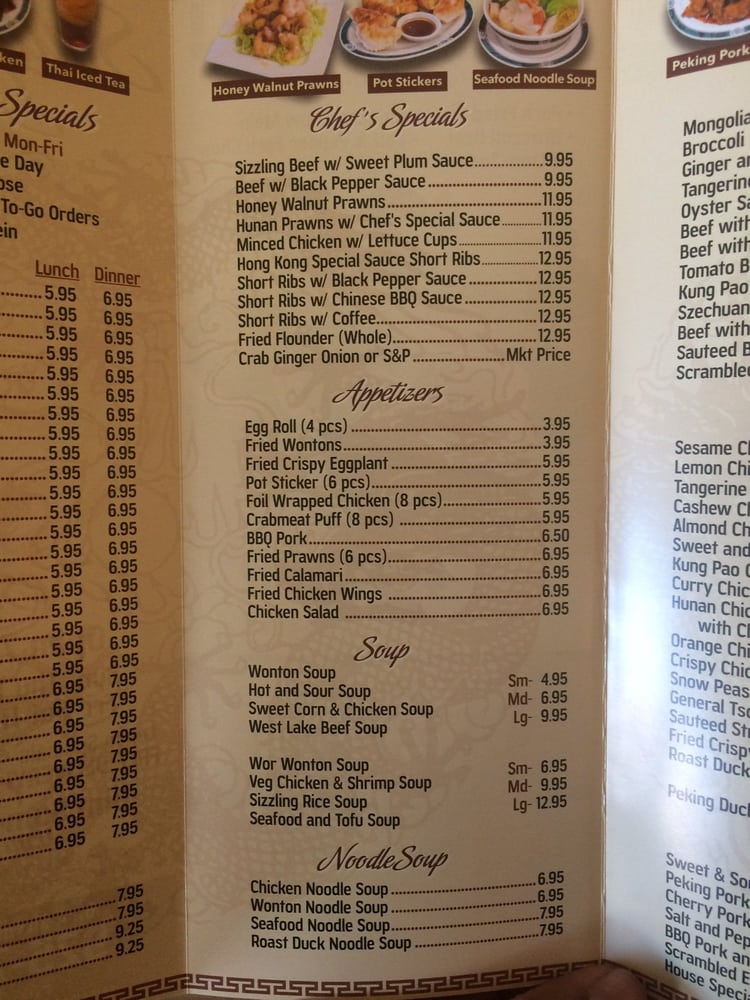 ken
Thai Iced Tea
Specials
Mon-Fri
e Day
ose
To-Go Orders
ein
Lunch Dinner
5.95 6.95
5.95 6.95
5.95 6.95
5.95 6.95
5.95 6.95
5.95 6.95
5.95 6.95
5.95 6.95
5.95 6.95
5.95 6.95
5.95 6.95
5.95 6.95
5.95 6.95
5.95 6.95
5.95 6.95
5.95 6.95
5.95 6.95
5.95 6.95
5.95 6.95
5.95 6.95
6.95 7.95
6.95 7.95
6.95 7.95
6.95 7.95
6.95 7.95
6.95 7.95
6.95 7.95
6.95 7.95
6.95 7.95
7.95
7.95
9.25
9.25
Honey Walnut Prawns
Pot Stickers
Seafood Noodle Soup
Chef's Specials
Sizzling Beef w/ Sweet Plum Sauce 9.95
Beef w/ Black Pepper Sauce 9.95
Honey Walnut Prawns 11.95
Hunan Prawns w/ Chef's Special Sauce 11.95
Minced Chicken w/ Lettuce Cups 11.95
Hong Kong Special Sauce Short Ribs 12.95
Short Ribs w/ Black Pepper Sauce 12.95
Short Ribs w/ Chinese BBQ Sauce 12.95
Short Ribs w/ Coffee 12.95
Fried Flounder (Whole) 12.95
Crab Ginger Onion or S&P Mkt Price
Appetizers
Egg Roll (4 pcs) 3.95
Fried Wontons 3.95
Fried Crispy Eggplant 5.95
Pot Sticker (6 pcs) 5.95
Foil Wrapped Chicken (8 pcs) 5.95
Crabmeat Puff (8 pcs) 5.95
BBQ Pork 6.50
Fried Prawns (6 pcs) 6.95
Fried Calamari 6.95
Fried Chicken Wings 6.95
Chicken Salad 6.95
Soup
Wonton Soup
Hot and Sour Soup
Sweet Corn & Chicken Soup
West Lake Beef Soup
Sm- 4.95
Md- 6.95
Lg- 9.95
Wor Wonton Soup
Veg Chicken & Shrimp Soup
Sizzling Rice Soup
Seafood and Tofu Soup
Sm- 6.95
Md- 9.95
Lg- 12.95
Noodle Soup
Chicken Noodle Soup 6.95
Wonton Noodle Soup 6.95
Seafood Noodle Soup 7.95
Roast Duck Noodle Soup 7.95
Peking Pork
Mongolia
Broccoli
Ginger an
Tangerine
Oyster Sa
Beef with
Beef with
Tomato B
Kung Pao
Szechuan
Beef with
Sauteed B
Scrambled
Sesame Ch
Lemon Chi
Tangerine
Cashew Ch
Almond Ch
Sweet and
Kung Pao C
Curry Chic
Hunan Chic
with Ch
Orange Chi
Crispy Chic
Snow Peas
General Tso
Sauteed Str
Fried Crisp
Roast Duck
Peking Duck
Sweet & Sou
Peking Pork
Cherry Pork
Salt and Pep
BBQ Pork an
Scrambled E
House Speci